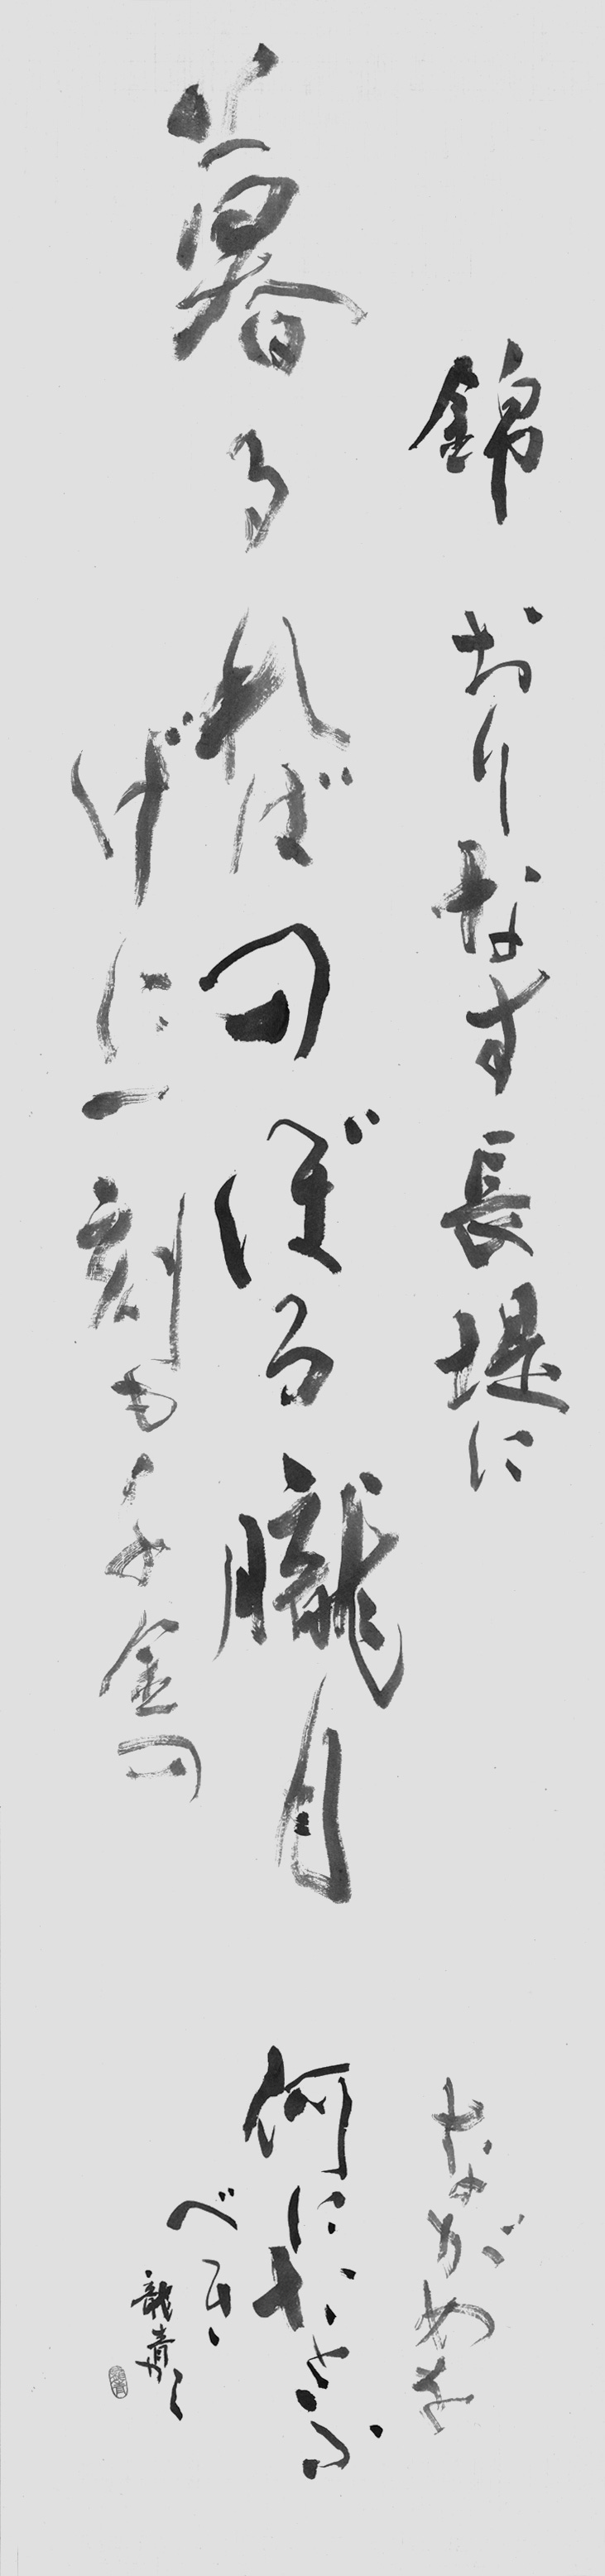 錦おりなす長堤に
暮るればのぼる朧月
げに一刻も千金の
ながめを
何にたとふ
べき
龍青かく